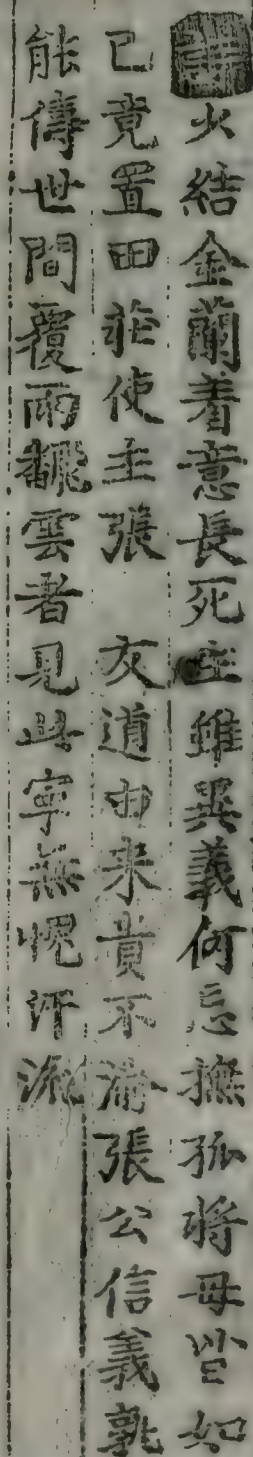 詩 火結金蘭着意長死生雖異義何忘撫孤將母皆如
己竟置田莊使主張 友道由来貴不渝張公信義孰
能傳世間覆雨飜雲者見此寧無愧汗流